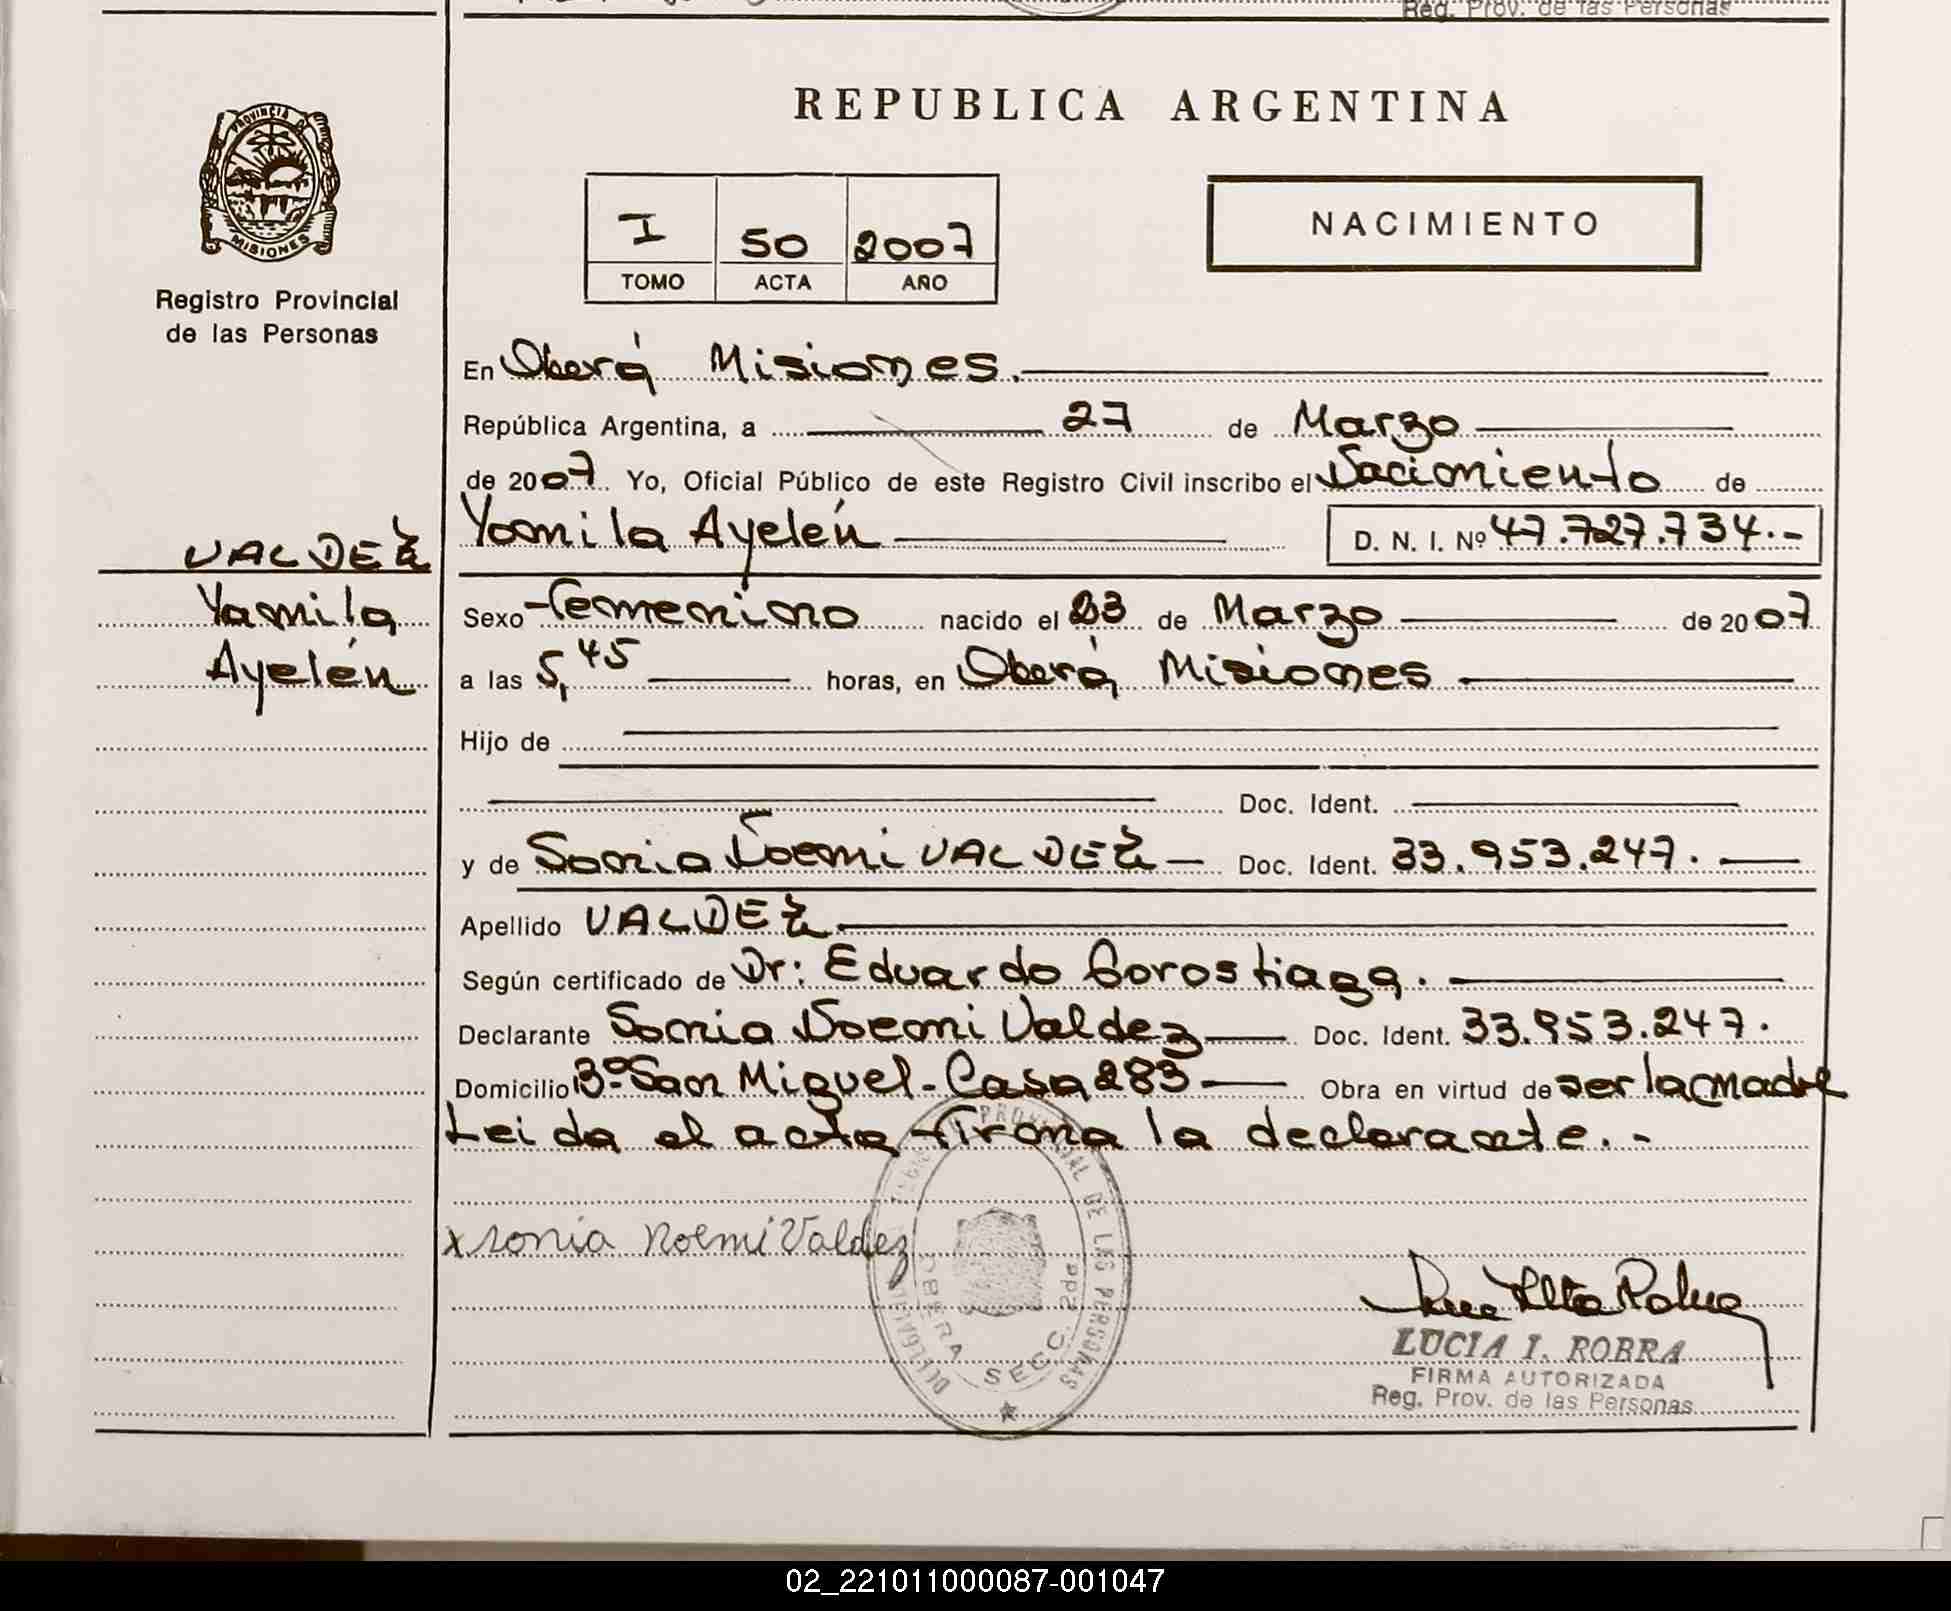 Reg. Prov. de las Personas
PROVINCIA DE
MISIONES
Registro Provincial
de las Personas
VALDEZ
Yamila
Ayelén
REPUBLICA ARGENTINA
I 50 2007
TOMO ACTA AÑO
NACIMIENTO
En Oberá Misiones.
República Argentina, a 27 de Marzo
de 2007 Yo, Oficial Público de este Registro Civil inscribo el Nacimiento de
Yamila Ayelén D. N. I. Nº 47.727.734.-
Sexo Femenino nacido el 23 de Marzo de 2007
a las 5,45 horas, en Oberá Misiones
Hijo de
Doc. Ident.
y de Sonia Noemi VALDEZ — Doc. Ident. 33.953.247.
Apellido VALDEZ
Según certificado de Dr: Eduardo Gorostiaga.
Declarante Sonia Noemi Valdez Doc. Ident. 33.953.247.
Domicilio Bº San Miguel - Casa 283 Obra en virtud de ser la madre
Leida el acta firma la declarante.-
x sonia noemi Valdez
DELEGACION REGISTRO PROVINCIAL DE LAS PERSONAS
OBERA SECC. 2da
LUCIA I. ROBRA
FIRMA AUTORIZADA
Reg. Prov. de las Personas
02_221011000087-001047